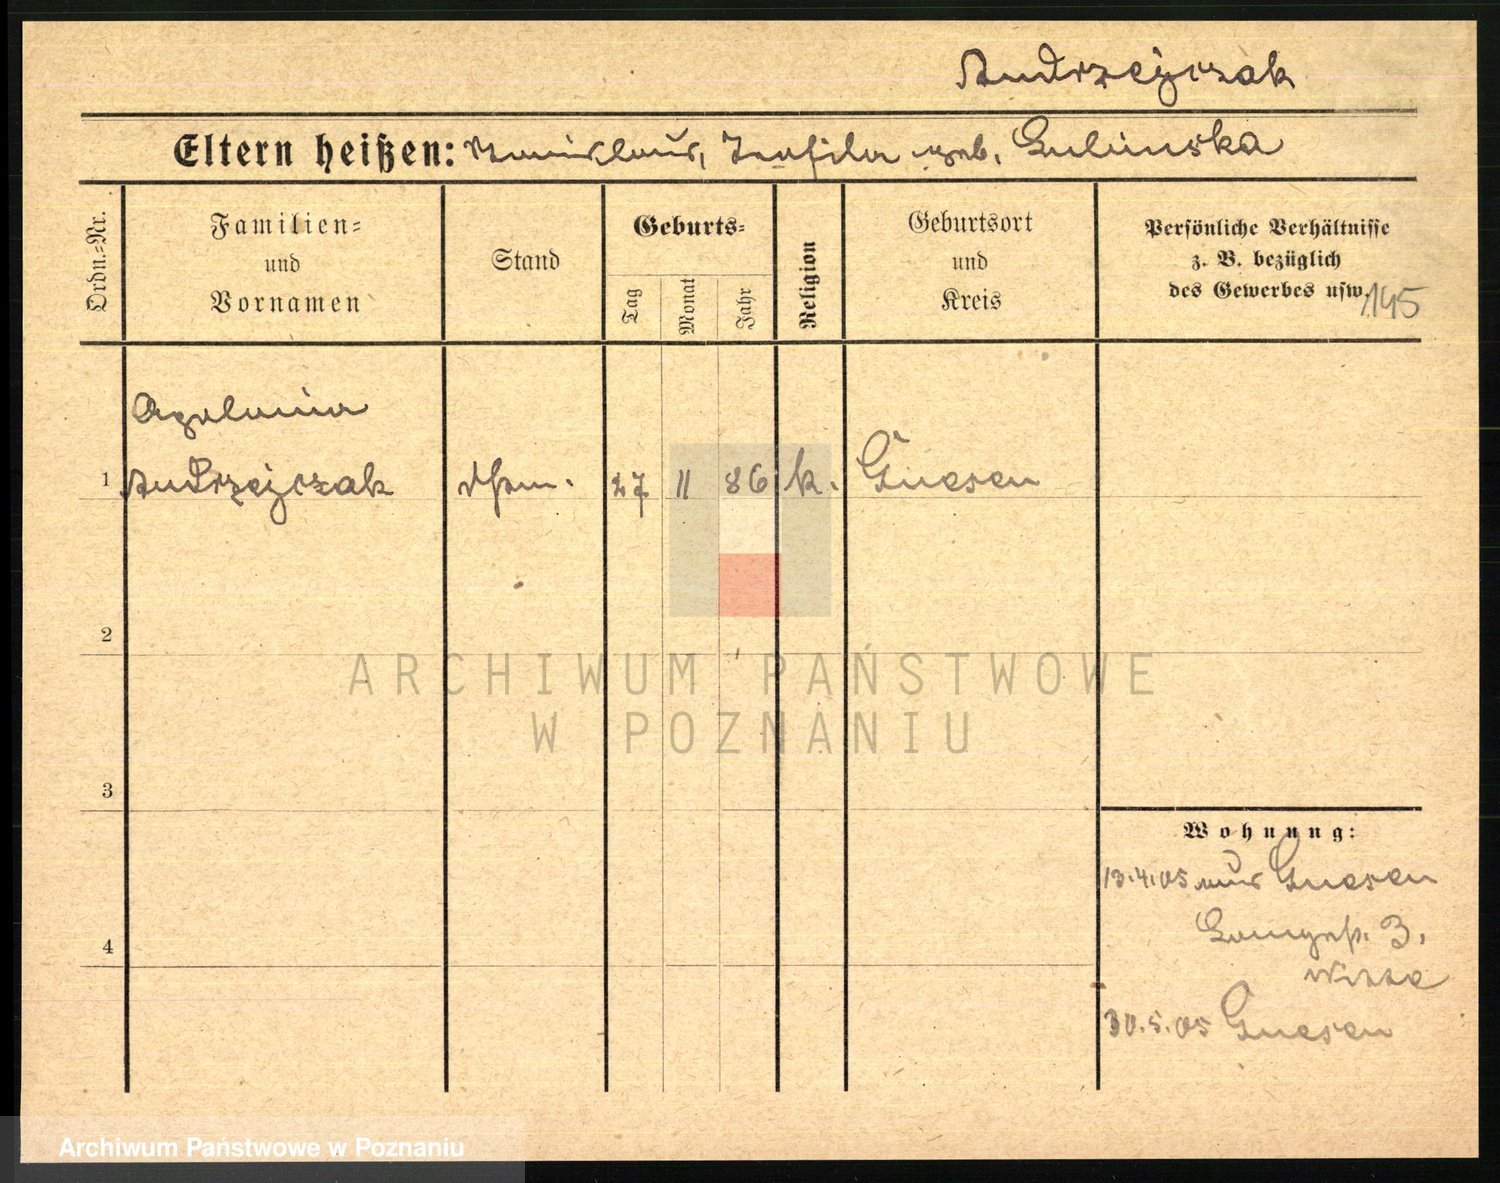 Andrzejczak
Eltern heißen: Stanislaus, Teofila geb. Gulinska
Ordn.-Nr.
Familien-
und
Vornamen
Stand
Geburts-
Tag
Monat
Jahr
Religion
Geburtsort
und
Kreis
Persönliche Verhältnisse
z. B. bezüglich
des Gewerbes usw.
145
Apolonia
1 Andrzejczak 27 11 86 k. Gnesen
2
3
4
ARCHIWUM PAŃSTWOWE
W POZNANIU
Wohnung:
13.4.05 aus Gnesen
3.
30.5.05 Gnesen
Archiwum Państwowe w Poznaniu